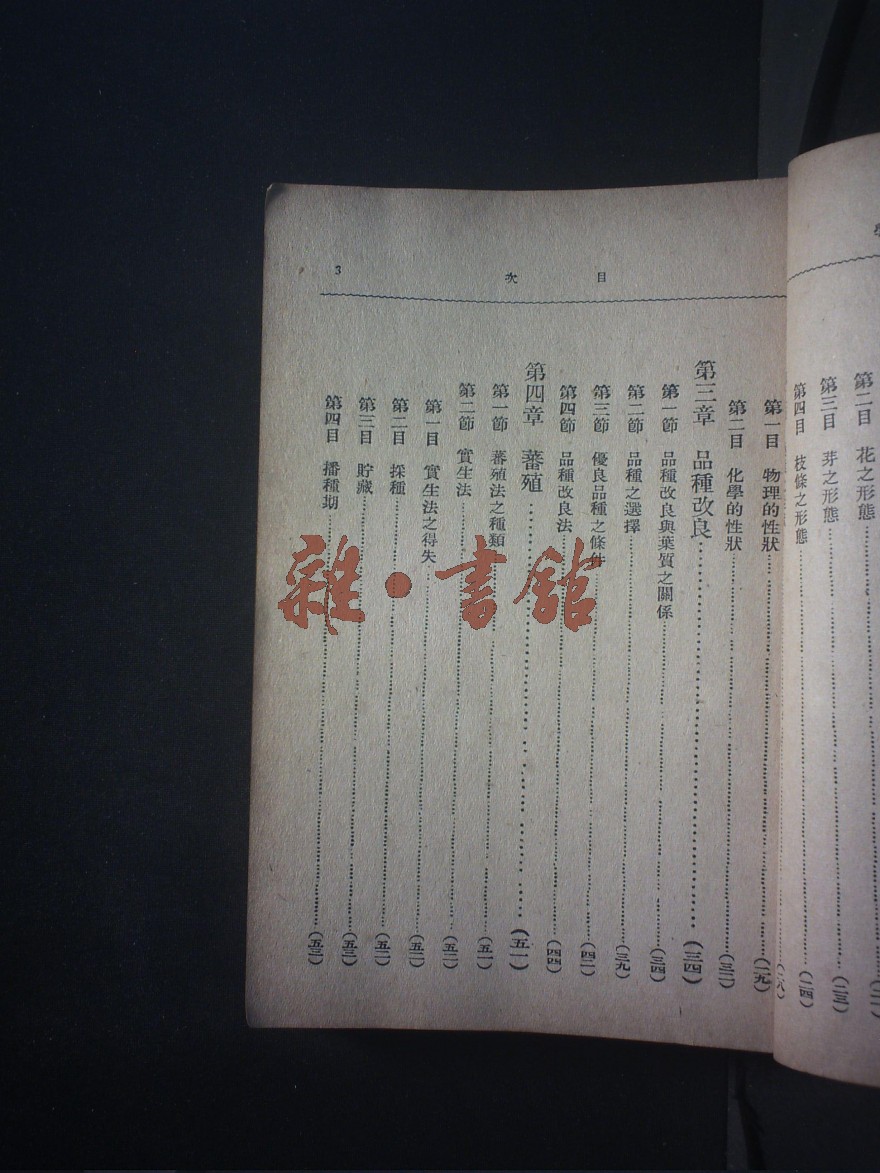 第二目 花之形態
第三目 芽之形態……(二三)
第四目 枝條之形態……(二四)
目 次 3
第一目 物理的性狀……(二九)
第二目 化學的性狀……(三二)
第三章 品種改良……(三四)
第一節 品種改良與葉質之關係……(三四)
第二節 品種之選擇……(三九)
第三節 優良品種之條件……(四二)
第四節 品種改良法……(四四)
第四章 蕃殖……(五一)
第一節 蕃殖法之種類……(五一)
第二節 實生法……(五二)
第一目 實生法之得失……(五二)
第二目 採種……(五二)
第三目 貯藏……(五三)
第四目 播種期……(五三)
雜·書館